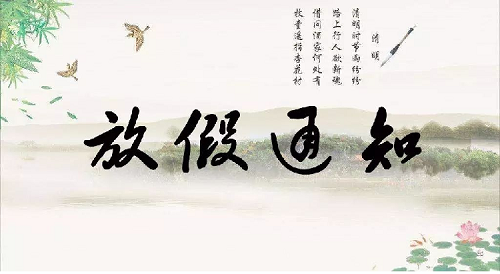 清明
清明时节雨纷纷
路上行人欲断魂
借问酒家何处有
牧童遥指杏花村
放假通知